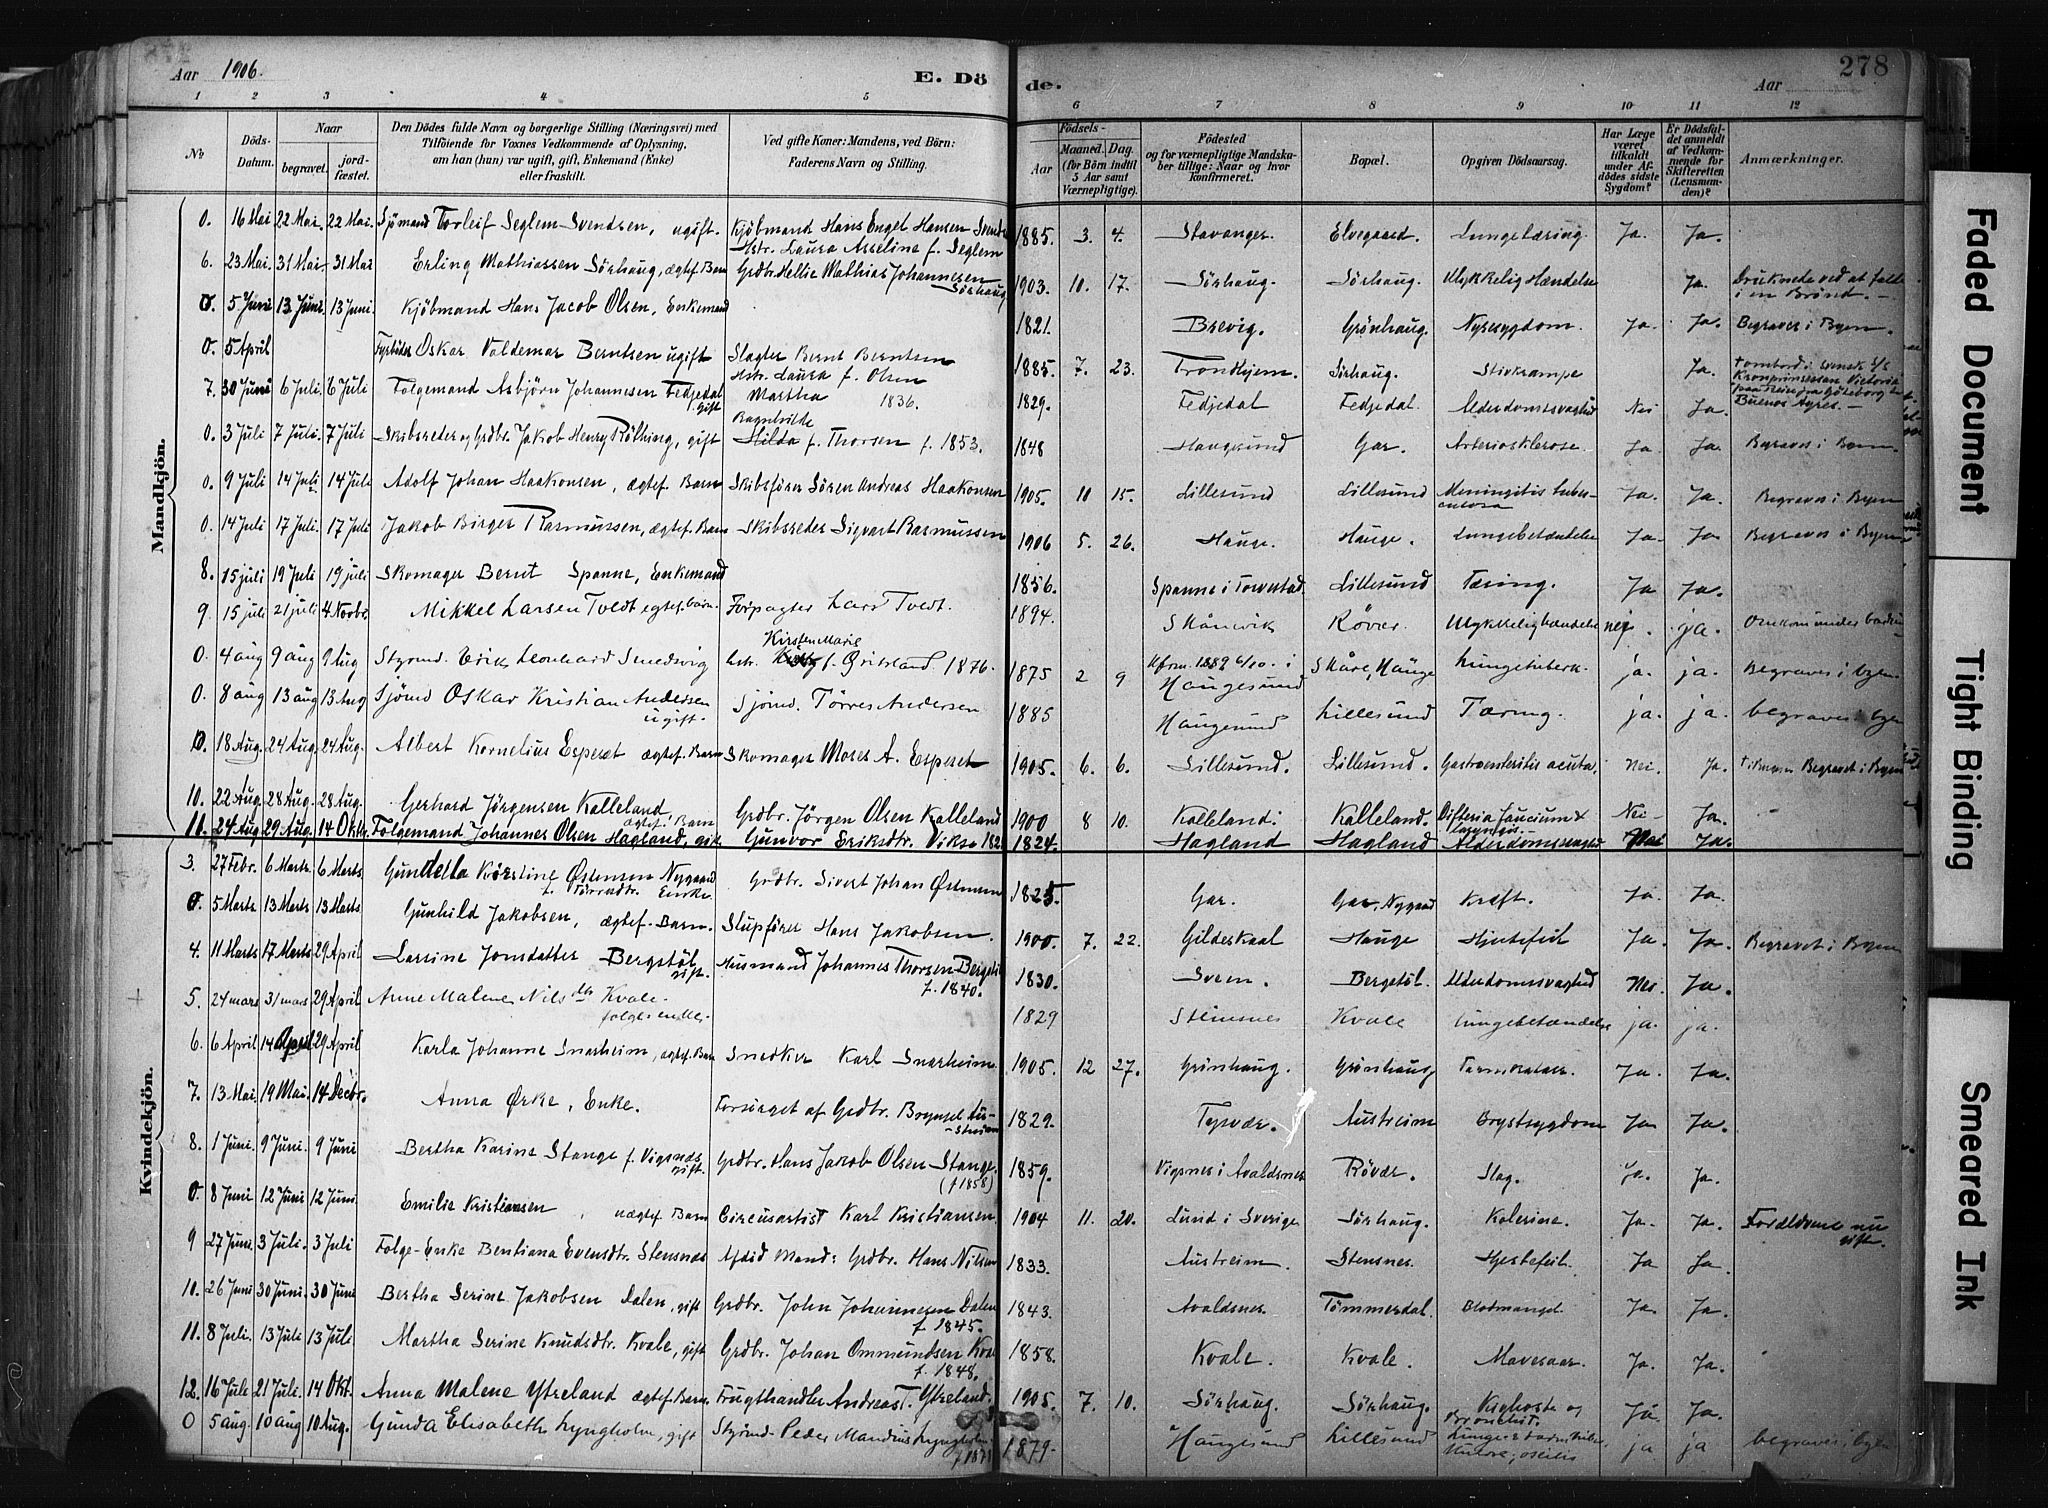 Aar 1906. E. Döde. Aar 278
1 2 3 4 5 6 7 8 9 10 11 12
No. Döds-Datum. Naar begravet. jordfæstet. Den Dödes fulde Navn og borgerlige Stilling (Næringsvei) med Tilföiende for Voxnes Vedkommende af Oplysning, om han (hun) var ugift, gift, Enkemand (Enke) eller fraskilt. Ved gifte Koner: Mandens, ved Börn: Faderens Navn og Stilling. Födsels- Aar Maaned. Dag. (for Börn indtil 5 Aar samt Værnepligtige). Födested og for værnepligtige Mandskaber tillige: Naar og hvor konfirmeret. Bopæl. Opgiven Dödsaarsag. Har Læge været tilkaldt under Afdödes sidste Sygdom? Er Dödsfaldet anmeldt af Vedkommende for Skifteretten (Lensmanden)? Anmærkninger.
Mandkjön.
0. 16 Mai 22 Mai. 22 Mai. Sjömand Torleif Seglem Svendsen, ugift. Kjöbmand Hans Engel Hansen Svends Hstr. Laura Asseline f. Seglem 1885. 3. 4. Stavanger Elvegaard. Lungetæring. Ja. Ja.
6. 23 Mai. 31 Mai 31 Mai Erling Mathiassen Sörhaug, ægtef. Barn Grdbr. Hellie Mathias Johannesen Sörhaug 1903. 10. 17. Sörhaug. Sörhaug. Ulykkelig Hændelse Ja. Druknede ved at falde i en Brönd.
0. 5 Juni 13 Juni. 13 Juni. Kjöbmand Hans Jacob Olsen, Enkemand 1821. Brevig. Grönhaug. Nyresygdom. Ja. Ja. Begraves i Byen.
0. 5 April Fyrböder Oskar Valdemar Berntsen ugift Slagter Bernt Berntsen Hstr. Laura f. Olsen 1885. 7. 23. Trondhjem. Sörhaug. Stivkrampe Ja. ombord i svensk S/S Kronprinsessan Victoria paa Reise fra Göteborg til Buenos Ayres.
7. 30 Juni 6 Juli. 6 Juli Folgemand Asbjörn Johannesen Fedjedal gift Martha 1836. 1829. Fedjedal Fedjedal. Alderdomssvaghed Nei Ja.
0. 3 Juli 7 Juli. 7 Juli Skibsreder og Grdbr. Jakob Henry Röthing, gift Ragnhilde Hilda f. Thorsen f. 1853. 1848 Haugesund Gar. Arteriosklerose. Ja Ja. Begraves i Byen
0. 9 Juli 14 Juli 14 Juli Adolf Johan Haakonsen, ægtef. Barn Skibsförer Sören Andreas Haakonsen 1905. 10 15. Lillesund Lillesund Meningitis tuberculosa Ja. Ja. Begraves i Byen
0. 14 Juli 17 Juli. 17 Juli Jakob Birger Rasmussen, ægtef. Barn Skibsreder Sigvart Rasmussen 1906 5. 26. Hauge. Hauge. Lungebetændelse Ja. Ja Begraves i Byen
8. 15 juli 19 Juli 19 juli Skomager Bernt Spanne, Enkemand 1856. Spanne i Torvestad. Lillesund Tæring. Ja Ja.
9. 15 juli 21 juli 4 Novbr. Mikkel Larsen Tveldt egtef. barn. Forpagter Lars Tvedt. 1894. Skånevik Røvær. Ulykkelig hændelse nei. ja. Omkom under
0. 4 aug 9 aug 9 Aug Styrmd. Erik Leonhard Smedsvig hstr. Kirsten Marie f. Qvitsland 1876. 1875 2 9 Kfrm. 1889 6/10. i Haugesund Skåre, Hauge Lungetuberk. ja. ja. Begraves i byen.
0. 8 aug 13 aug 13 Aug Sjömd Oskar Kristian Andersen ugift. Sjömd. Törres Andersen 1885 Haugesund Lillesund Tæring. ja. ja. begraves i byen
0. 18 Aug. 24 Aug. 24 Aug. Albert Kornelius Espeset ægtef. Barn Skomager Moses A. Espeset 1905. 6. 6. Lillesund. Lillesund. Gastroenteritis acuta. Nei. Ja. Begravet i Byen
10. 22 Aug. 28 Aug. 28 Aug. Gerhard Jörgensen Kalleland, ægtef. Barn Grdbr. Jörgen Olsen Kalleland 1900 8 10. Kalleland. Kalleland. Difteria faucium & laryngis. Nei Ja.
11. 24 Aug. 29 Aug. 14 Oktr. Folgemand Johannes Olsen Hagland, gift Gunvor Eriksdtr. Vikse 182 1824. Hagland Hagland Alderdomssvaghed Nei Ja.
Kvindekjön.
3. 27 Febr. 6 Marts 6 Marts Gundella Kirstine Østensen Nygaard f. Enke. Grdbr. Sivert Johan Østensen 1825. Gar. Gar, Nygård Kræft. Ja. Ja.
0. 5 Marts 13 Marts 13 Marts Gunhild Jakobsen, ægtef. Barn. Slupförer Hans Jakobsen. 1900. 7. 22. Gildeskaal Hauge Hjertefeil Ja. Ja. Begravet i Byen
4. 11 Marts 17 Marts 29 April Larsine Jonsdatter Bergstöl gift. Husmand Johannes Thorsen Bergstöl f. 1840. 1830. Sveen. Bergstöl. Alderdomssvaghed Nei. Ja.
5. 24 mars 31 mars 29 April Anne Malene Nilsdtr Kvale. folgeenke. 1829 Steinsnes Kvale Lungebetændelse ja. ja.
6. 6 April 14 April 29 April Karla Johanne Snarheim, ægtef. Barn Snedker Karl Snarheim. 1905. 12 27. Grönhaug. Grönhaug Tarmkatarr. Ja. Ja.
7. 13 Mai. 19 Mai. 14 Decbr. Anna Ørke, Enke. Forsörget af Grdbr. Brynjel Austreim 1829. Tysvær. Austreim Brystsygdom Ja Ja.
8. 1 Juni. 9 Juni. 9 Juni Bertha Karine Stange f. Vigsnæs gift. Grdbr. Hans Jakob Olsen Stange. (f 1858) 1859. Vigsnes i Avaldsnes Røvær. Slag. Ja. Ja.
0. 8 Juni 12 Juni 12 Juni Emilie Kristiansen, uægtef. Barn Circusartist Karl Kristiansen. 1904 11. 20. Lund i Sverige Sörhaug. Kolerine. Ja. Ja. Forældrene nu gifte.
9 27 Juni. 3 Juli. 3 Juli Folge-Enke Bentiana Evensdtr. Stensnæs Afdöd Mand: Grdbr. Hans Nilsen 1833. Austreim. Stensnes. Hjertefeil. Ja Ja.
10. 26 Juni 30 Juni. 30 Juni Bertha Serine Jakobsen Dalen, gift Grdbr. John Johannesen Dalen f. 1845. 1843. Avaldsnes. Tömmerdal. Blodmangel Ja. Ja.
11. 8 Juli. 13 Juli 13 Juli Martha Serine Knudsdtr. Kvale, gift Grdbr. Johan Ommundsen Kvale f. 1848. 1858. Kvale. Kvale. Mavesaar. Ja. Ja.
12. 16 Juli 21 Juli. 14 Okt. Anna Malene Ytreland ægtef. Barn. Frugthandler Andreas T. Ytreland. 1905. 7. 10. Sörhaug. Sörhaug. Kighoste og Bronchit. Ja. Ja.
0 5 aug 10 aug 10 Aug. Gunda Elisabeth Lyngholm, gift Styrmd. Peder Mandius Lyngholm f 187 1879. Haugesund Lillesund Lunge & ja ja begraves i byen
Faded Document
Tight Binding
Smeared Ink